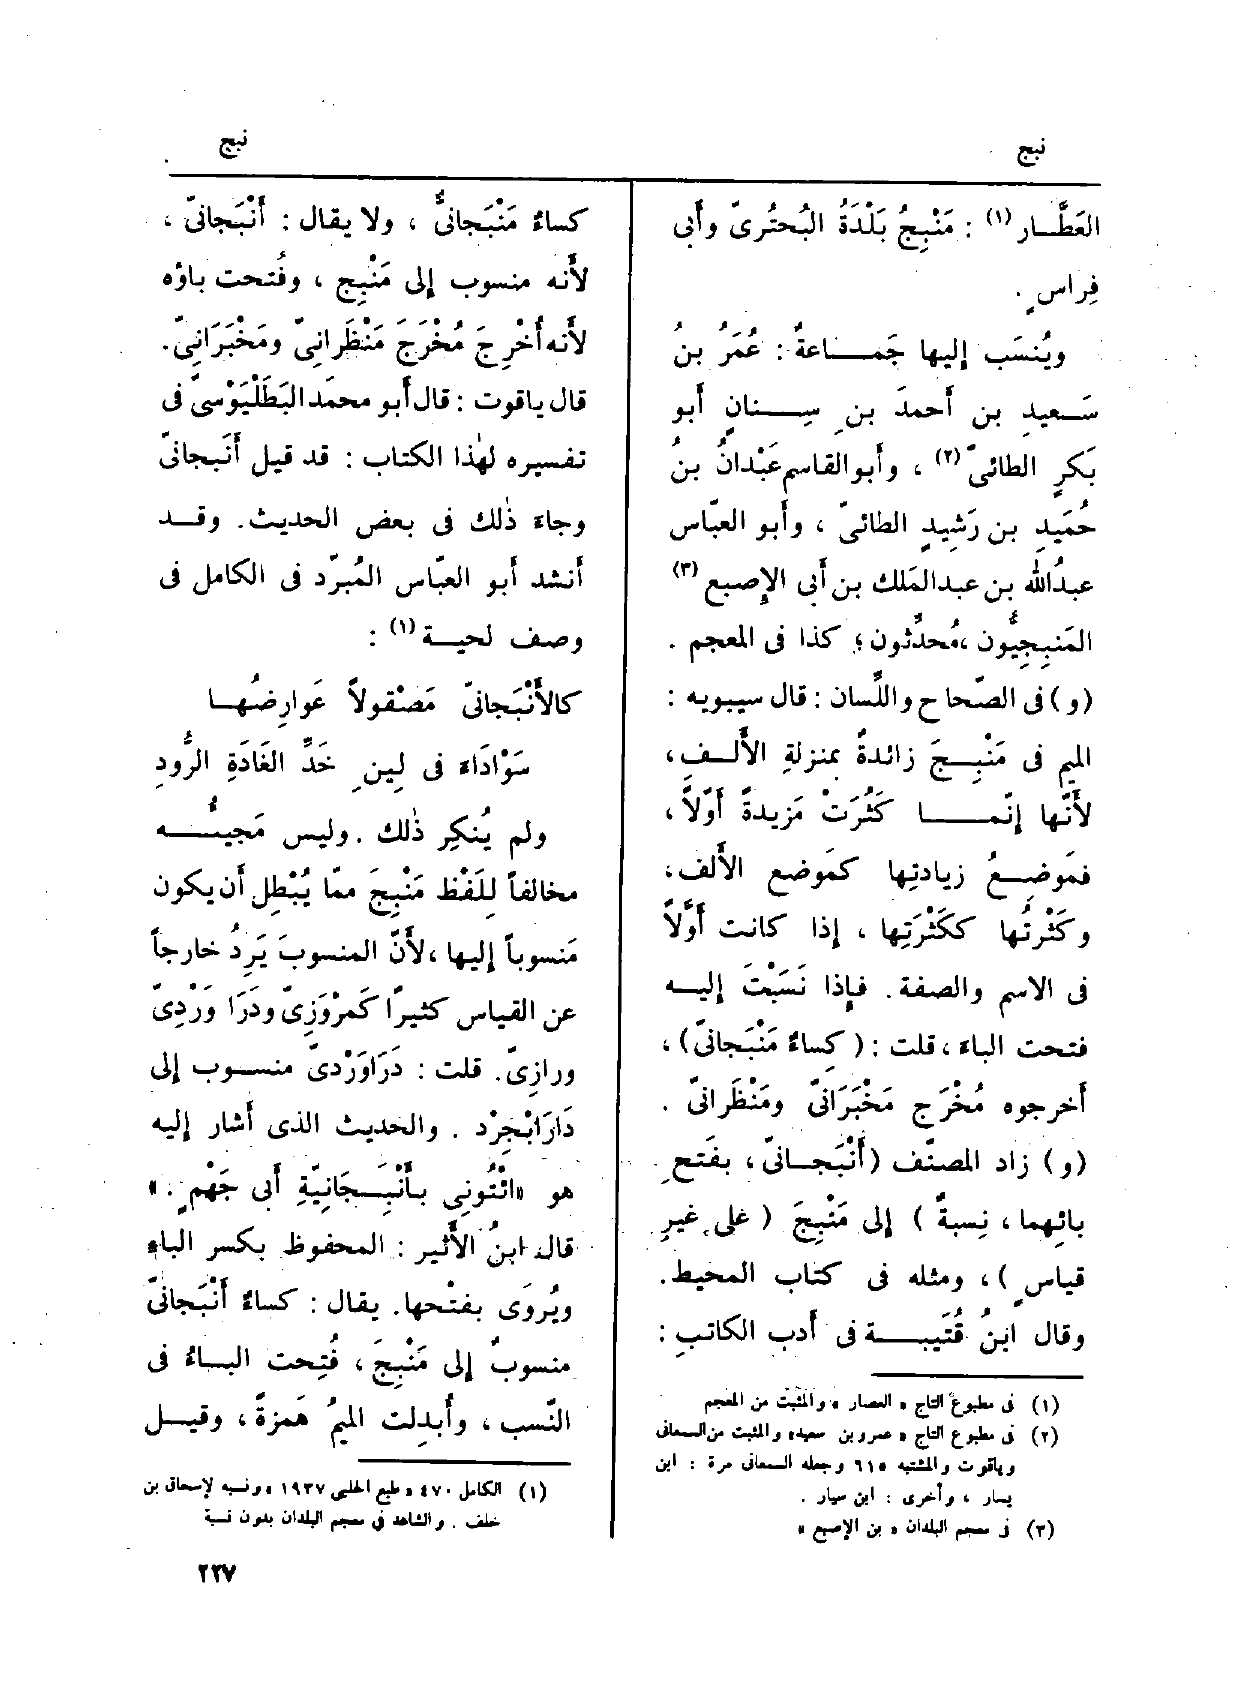 نبج
نبج
العَطَّار (١) : مَنْبِجُ بَلْدَةُ البُحتُرىّ وأَبى
فِراسٍ .
ويُنسَب إليها جَمـاعةٌ : عُمَرُ بن
سَعيدِ بن أحمدَ بنِ سِنانٍ أبو
بَكرٍ الطائىّ (٢) ، وأبو القاسم عَبْدانُ بنُ
حُمَيدِ بن رَشيدٍ الطائىّ ، وأَبو العبّاس
عبدُالله بن عبدالملك بن أبى الإِصبع (٣)
المَنبِجِيُّون ، مُحدِّثون ؛ كذا فى المعجم .
(و) فى الصّحاح واللِّسان : قال سيبويه :
الميم فى مَنْبِـجَ زائدةٌ بمنزلةِ الأَلـفِ ،
لأَنَّها إنّمـا كَثُرَتْ مَزيدةً أَوّلاً ،
فمَوضِـعُ زيادتِها كمَوضع الأَلف ،
وكَثْرتُها ككَثْرَتِها ، إذا كانت أَوّلاً
فى الاسم والصفة . فإذا نَسَبْتَ إليـه
فتحت الباء ، قلت : (كِساءٌ مَنْبَجانىّ) ،
أخرجوه مُخْرَج مَخْبَرَانىّ ومَنْظَرانىّ .
(و) زاد المصنّف (أَنْبَجـانىّ ، بفَتحِ
بائِهما ، نِسبةٌ ) إلى مَنْبِجَ ( على غيرِ
قياسٍ ) ، ومثله فى كتاب المحيط .
وقال ابنُ قُتَيبـة فى أدب الكاتب :
(١) فى مطبوع التاج « العصار » والمثبت من المعجم
(٢) فى مطبوع التاج « عمرو بن سعيد » والمثبت من السمعانى
وياقوت والمشتبه ٦١٥ وجعله السمعانى مرة : ابن
يسار ، وأخرى : ابن سيار .
(٣) فى معجم البلدان « بن الإصبع »
كساءٌ مَنْبَجانىٌّ ، ولا يقال : أَنْبَجانىّ ،
لأَنه منسوب إلى مَنْبِج ، وفُتحت باؤه
لأَنه أُخْرِجَ مُخْرَجَ مَنْظَرانِىّ ومَخْبَرَانِىّ .
قال ياقوت : قال أبو محمّد البَطَلْيَوْسىّ فى
تفسيره لهٰذا الكتاب : قد قيل أَنْبجانىّ
وجاءَ ذٰلك فى بعض الحديث . وقـد
أنشد أبو العبّاس المُبرّد فى الكامل فى
وصف لحيـة (١) :
كالأَنْبَجانىّ مَصْقولاً عَوارِضُهـا
سَوْدَاءَ فى لِينِ خَدِّ الغَادَةِ الرُّودِ
ولم يُنكِر ذٰلك . وليس مَجيئُـه
مخالفاً لِلَفْظ مَنْبِجَ ممّا يُبْطِل أَن يكون
مَنسوباً إليها ، لأَنّ المنسوبَ يَرِدُ خارجاً
عن القياس كثيرًا كَمرْوَزِىّ ودَرَا وَرْدِىّ
ورازِىّ . قلت : دَرَاوَرْدىّ منسـوب إلى
دَارَابْجِرْد . والحديث الذى أشار إليه
هو «ائْتُونى بـأَنْبَـجَانِيَّةِ أَبى جَهْمٍ . »
قال ابنُ الأَثير : المحفوظ بكسر الباءِ
ويُروَى بفتْحها . يقال : كساءٌ أَنْبَجانىّ
منسوبٌ إلى مَنْبِجَ ، فُتِحت البـاءُ فى
النّسب ، وأُبدِلت الميمُ هَمزةً ، وقيـل
(١) الكامل ٤٧٠ « طبع الحلبي ١٩٣٧ » ونسبه لإسحاق بن
خلف . والشاهد فى معجم البلدان بدون نسبة
٢٢٧